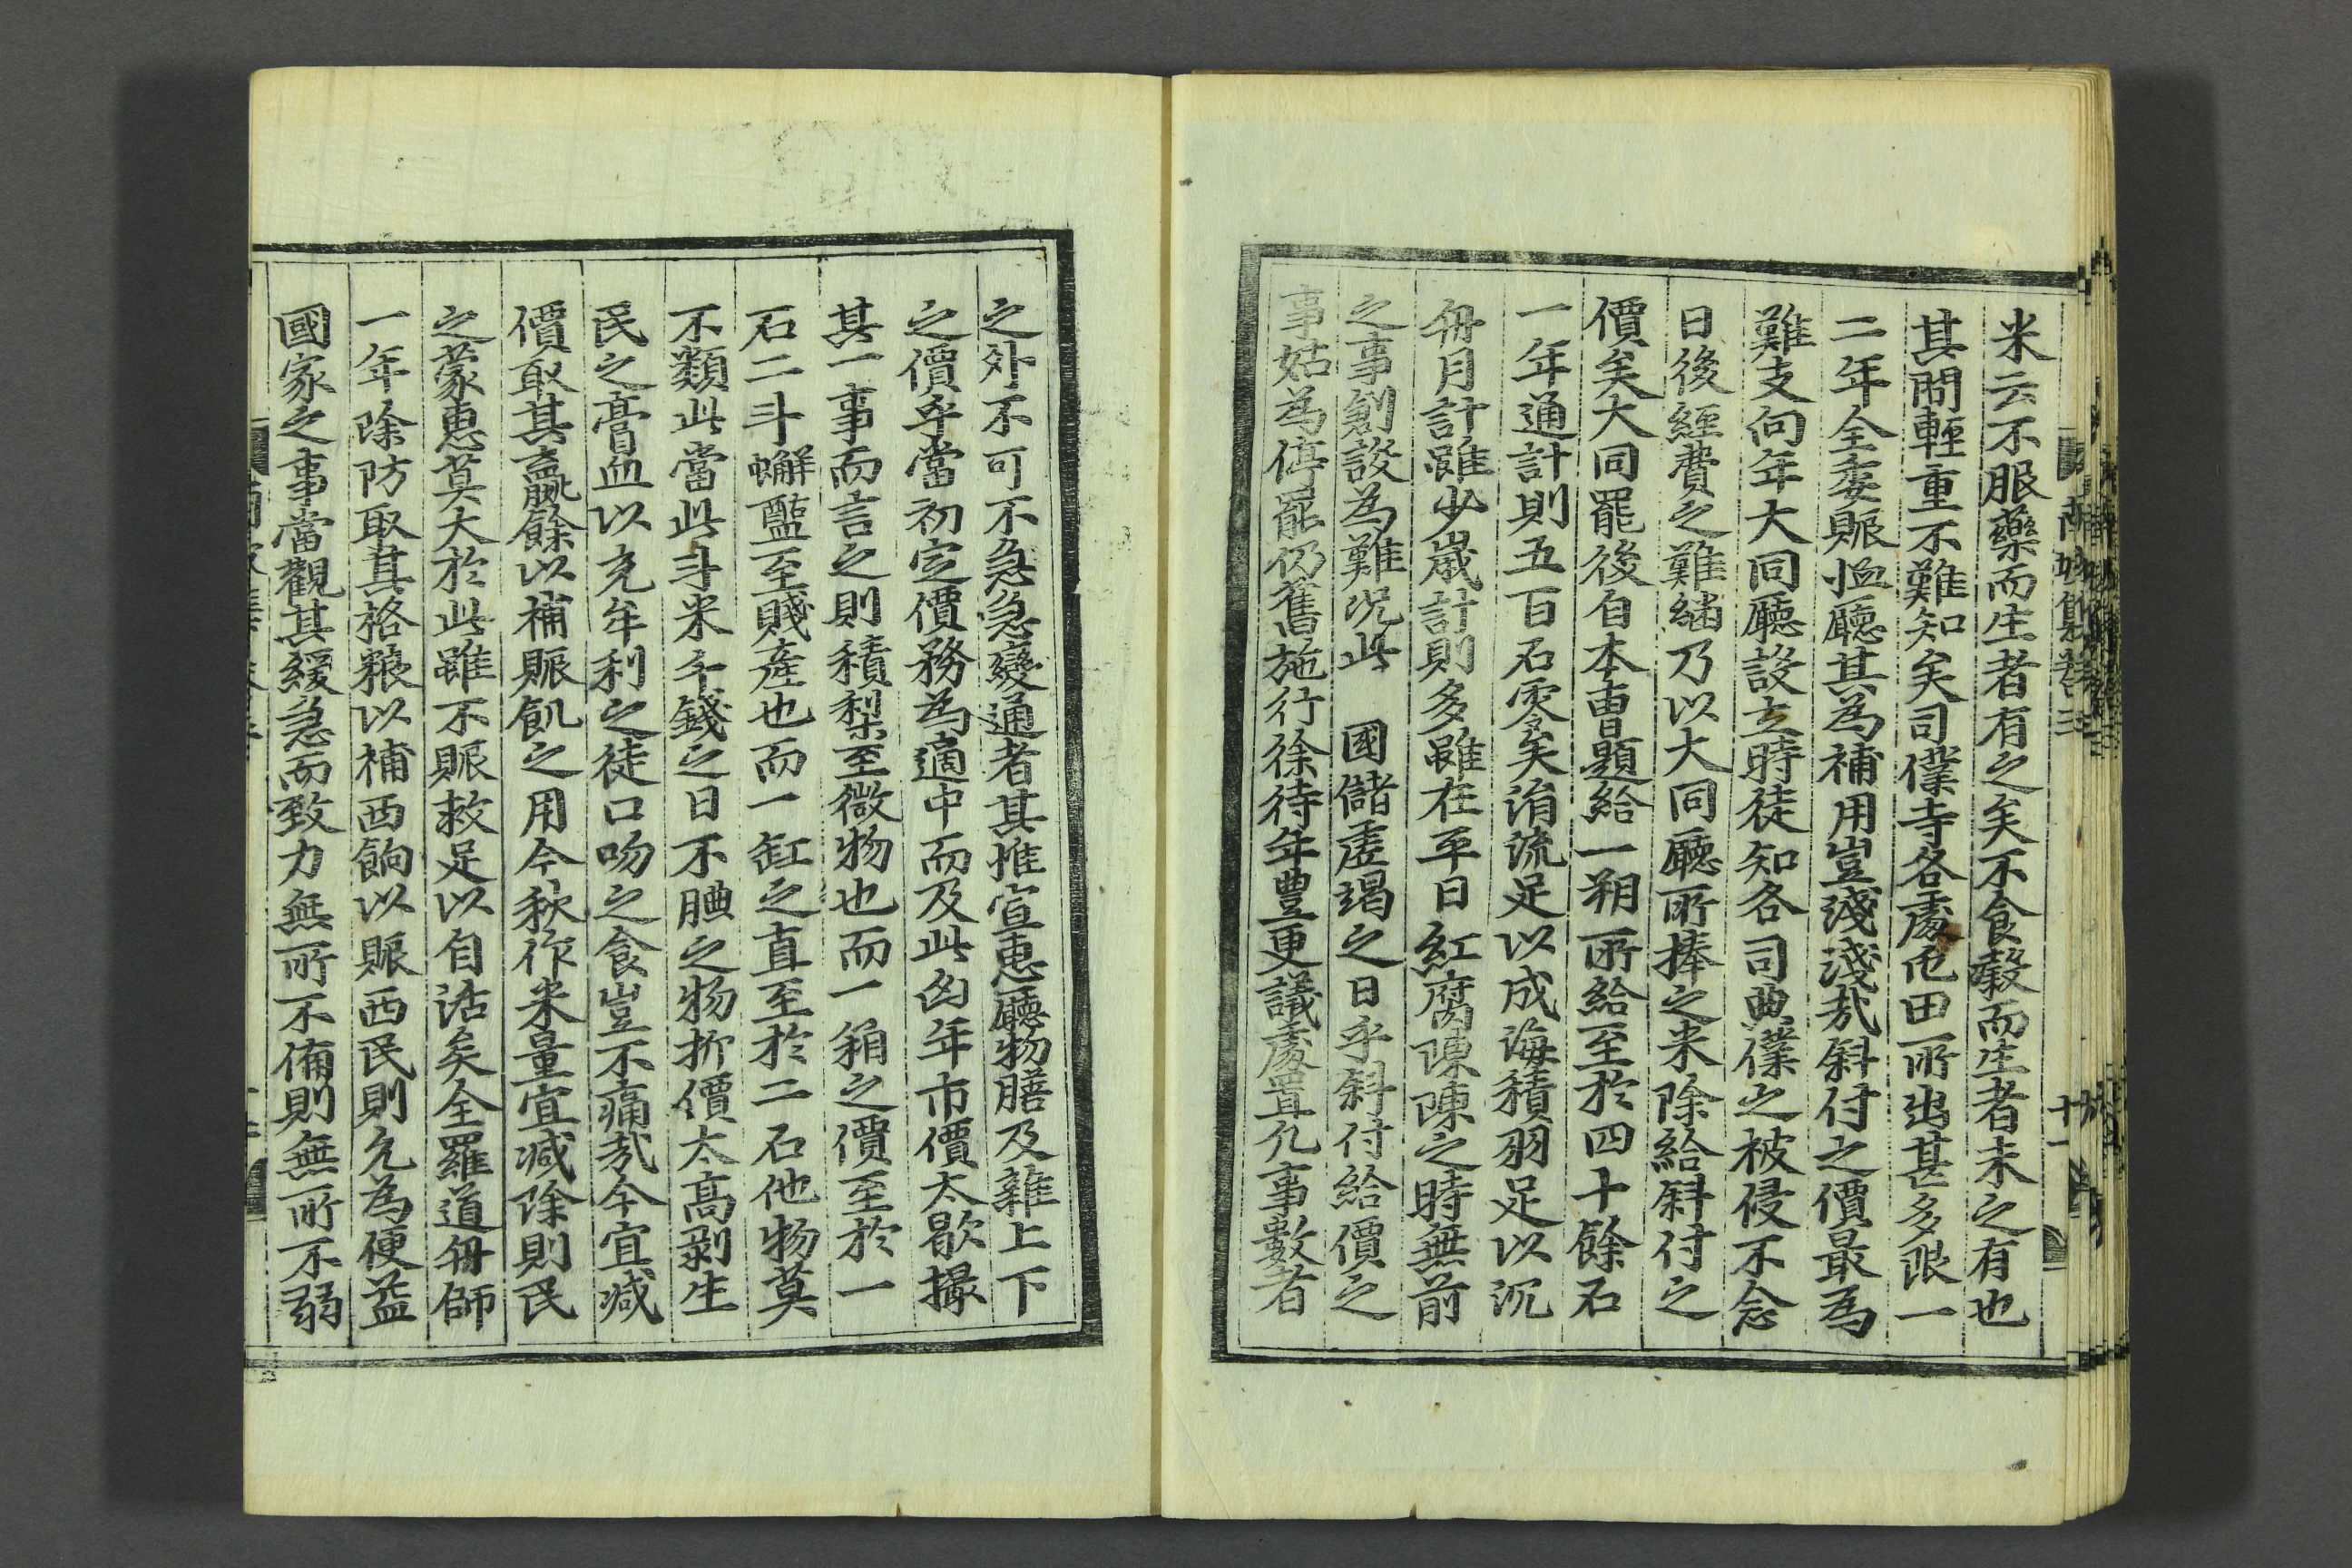 米云不服藥而生者有之矣不食穀而生者未之有也
其間輕重不難知矣司僕寺各處屯田所出甚多限一
二年全委賑恤廳其為補用豈淺淺哉斜付之價最為
難支向年大同廳設立時徒知各司典僕之被侵不念
日後經費之難繼乃以大同廳所捧之米除給斜付之
價矣大同罷後自本曺題給一朔所給至於四十餘石
一年通計則五百石零矣涓流足以成海積羽足以沉
舟月計雖少歲計則多雖在平日紅腐陳陳之時無前
之事創設為難況此 國儲虛竭之日乎斜付給價之
事姑為停罷仍舊施行徐待年豊更議處置凡事數者
之外不可不急急變通者其惟宣惠廳物膳及雜上下
之價乎當初定價務為適中而及此凶年市價太歇撮
其一事而言之則積梨至微物也而一箱之價至於一
石二斗蠏醢至賤產也而一缸之直至於二石他物莫
不類此當此斗米千錢之日不腆之物折價太高剥生
民之膏血以充牟利之徒口吻之食豈不痛哉今宜减
價取其贏餘以補賑飢之用今秋作米量宜减除則民
之蒙惠莫大於此雖不賑救足以自活矣全羅道舟師
一年除防取其格粮以補西餉以賑西民則允為便益
國家之事當觀其緩急而致力無所不備則無所不弱